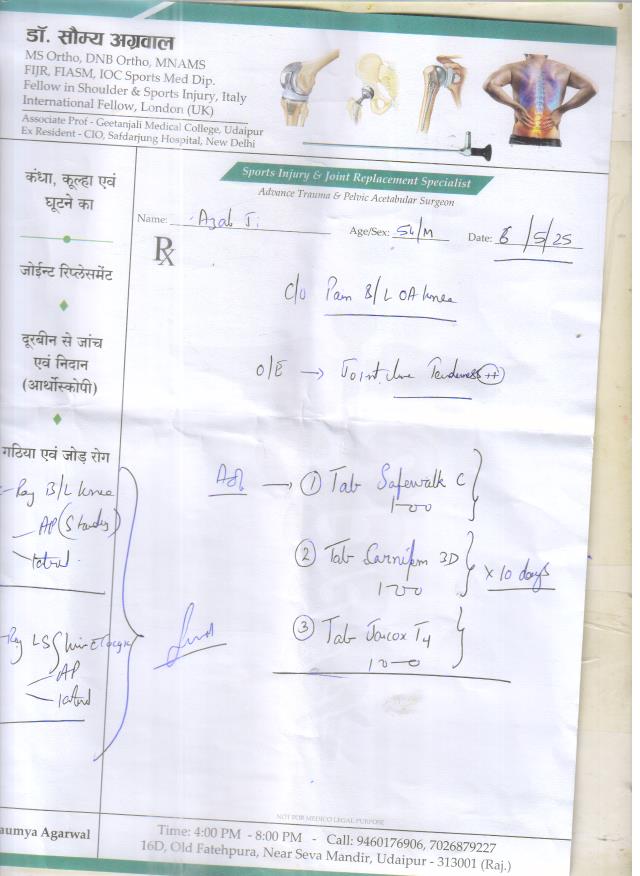 डॉ. सौम्य अग्रवाल
MS Ortho, DNB Ortho, MNAMS
FIJR, FIASM, IOC Sports Med Dip.
Fellow in Shoulder & Sports Injury, Italy
International Fellow, London (UK)
Associate Prof - Geetanjali Medical College, Udaipur
Ex Resident - CIO, Safdarjung Hospital, New Delhi
Sports Injury & Joint Replacement Specialist
Advance Trauma & Pelvic Acetabular Surgeon
Name: Ji Age/Sex: 54/M Date: 8/5/25
Rx
कंधा, कूल्हा एवं
घूटने का
जोईन्ट रिप्लेसमेंट
दूरबीन से जांच
एवं निदान
(आर्थोस्कोपी)
गठिया एवं जोड़ रोग
c/o Pain B/L OA knee
O/E → Joint line Tenderness ++
-Ray B/L knee
AP (Standing)
lateral
-Ray LS
AP
lateral
Adv → ① Tab Safewalk C
1-0-0
② Tab 3D
1-0-0
③ Tab T4
1-0-0
x 10 days
NOT FOR MEDICO LEGAL PURPOSE
aumya Agarwal
Time: 4:00 PM - 8:00 PM - Call: 9460176906, 7026879227
16D, Old Fatehpura, Near Seva Mandir, Udaipur - 313001 (Raj.)